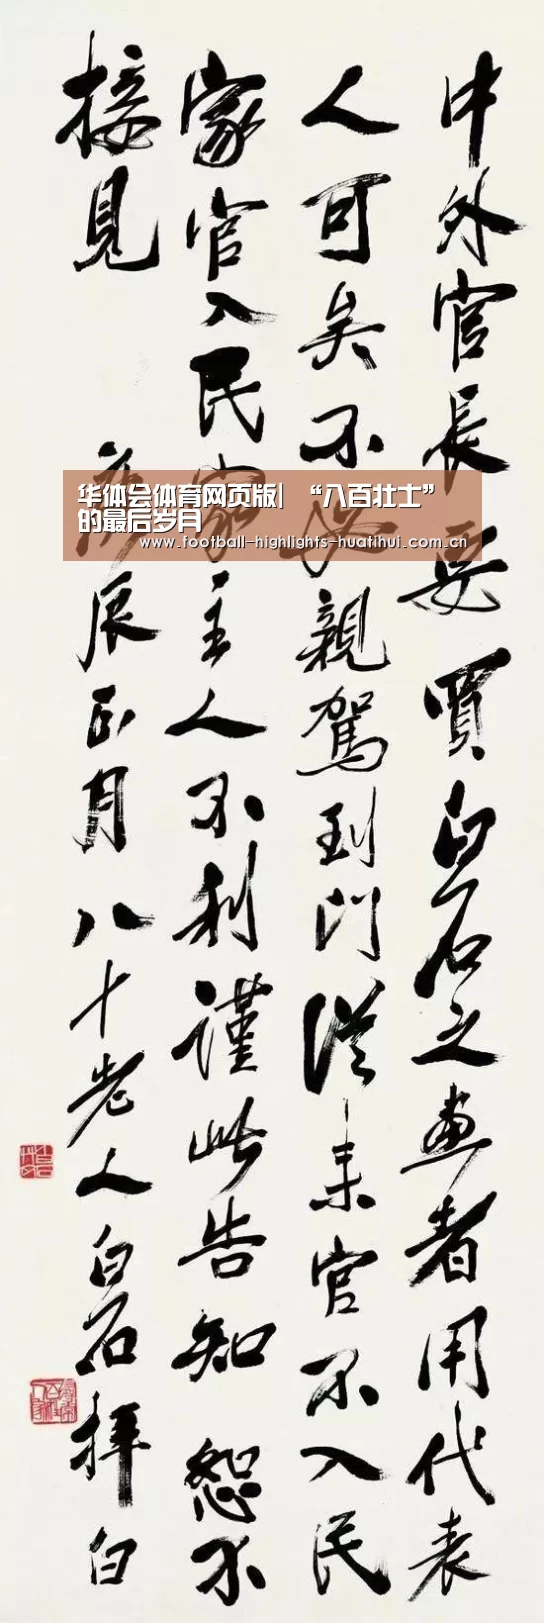 中外官長要買白石之畫者用代表
人可矣不必親駕到門從来官不入民
家官入民家主人不利謹此告知 恕不
接見 庚辰正月八十老人白石拜白
华体会体育网页版| “八百壮士”
的最后岁月
www.football-highlights-huatihui.com.cn